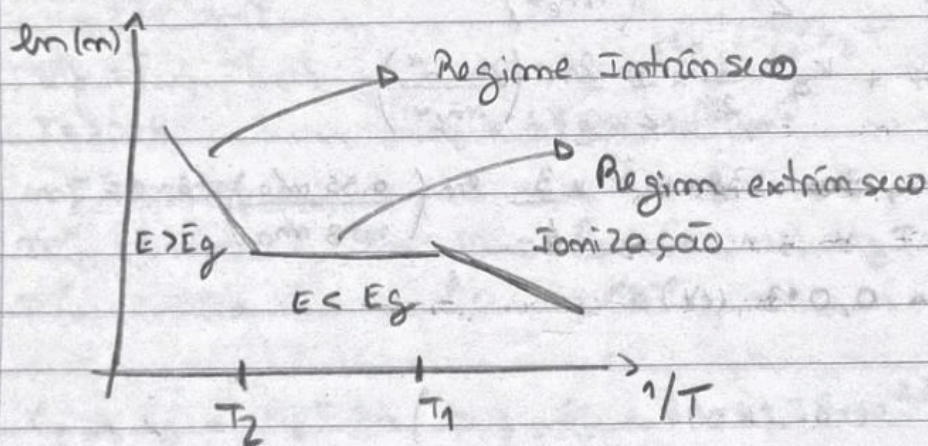 ln(n)
Regime Intrínseco
Regim extrínseco
Ionização
E > Eg
E < Eg
T2
T1
1/T